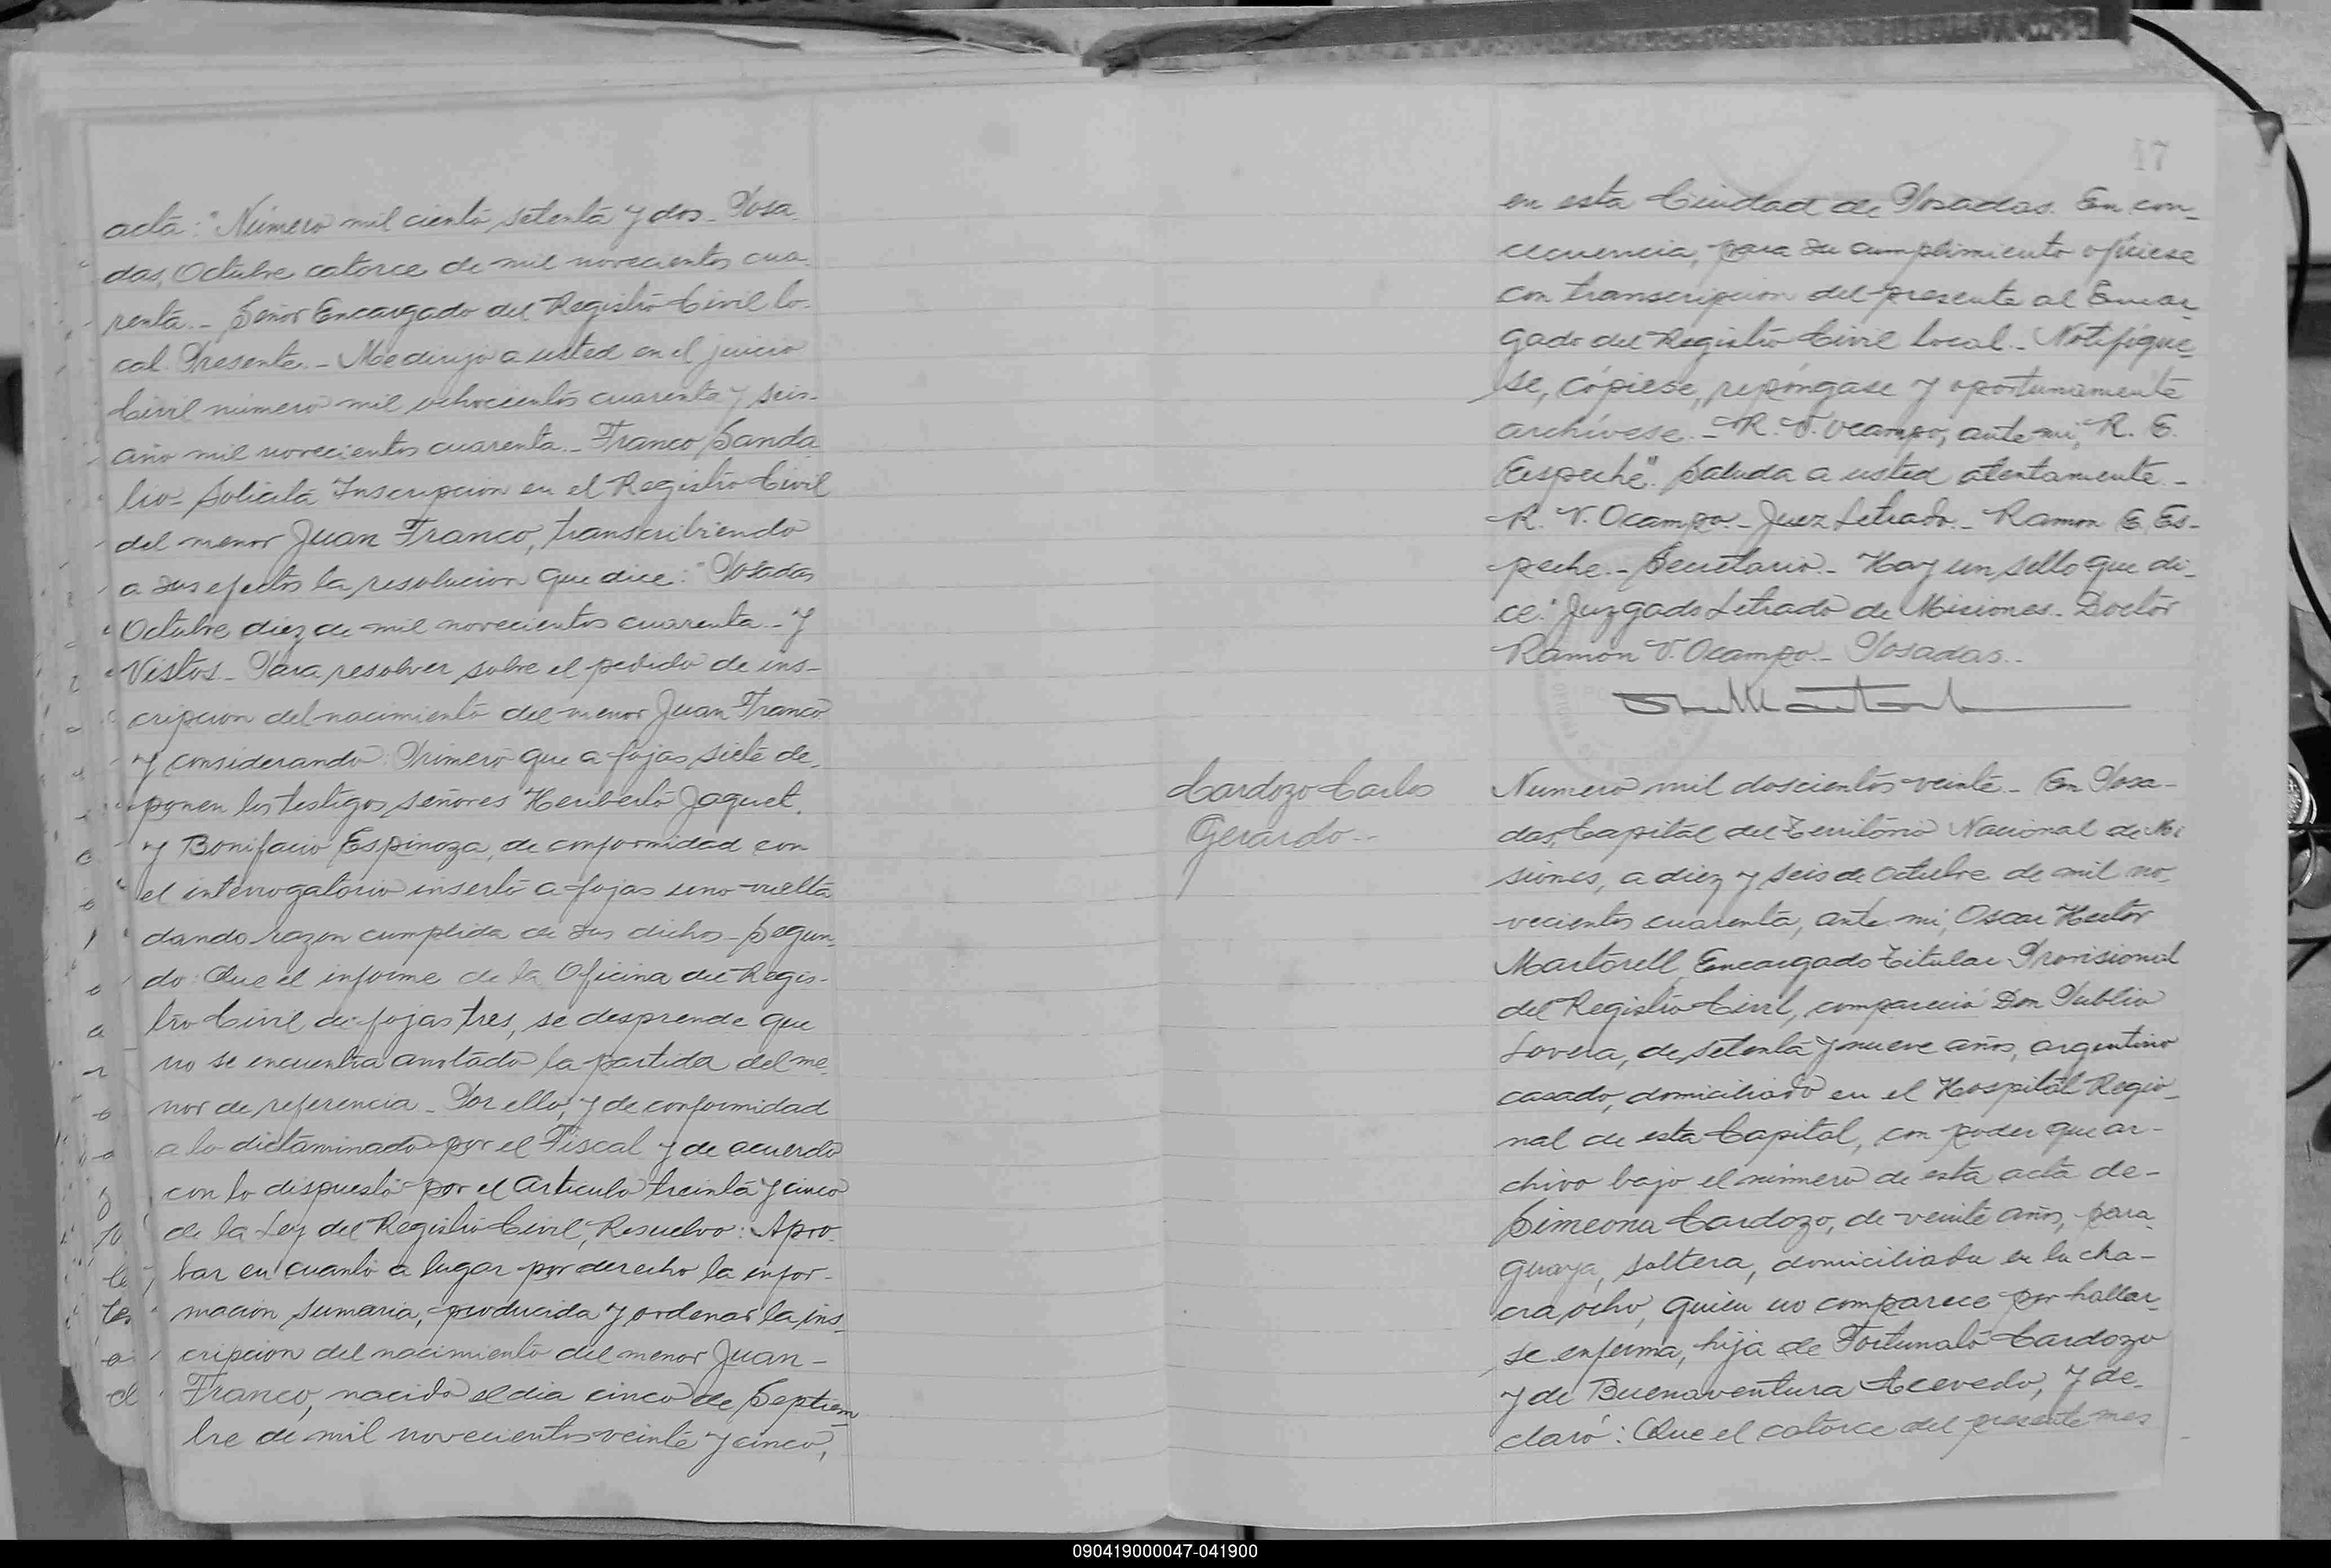 acta: "Número mil ciento setenta y dos - Posa-
das, Octubre catorce de mil novecientos cua-
renta. - Señor Encargado del Registro Civil lo-
cal. Presente. - Me dirijo a usted en el juicio
Civil número mil ochocientos cuarenta y seis-
año mil novecientos cuarenta. - Franco Sanda-
lio - Solicita Inscripcion en el Registro Civil
del menor Juan Franco, transcribiendo
a sus efectos la resolucion que dice: "Posadas
Octubre diez de mil novecientos cuarenta. - Y
Vistos. - Para resolver sobre el pedido de ins-
cripcion del nacimiento del menor Juan Franco
y considerando: Primero que a fojas siete de-
ponen los testigos señores Heriberto Jaquet.
y Bonifacio Espinoza, de conformidad con
el interrogatorio inserto a fojas uno vuelta
dando razon cumplida de sus dichos - Segun-
do: Que el informe de la Oficina del Regis-
tro Civil de fojas tres, se desprende que
no se encuentra anotada la partida del me-
nor de referencia - Por ello, y de conformidad
a lo dictaminado por el Fiscal y de acuerdo
con lo dispuesto por el articulo treinta y cinco
de la Ley del Registro Civil, Resuelvo: Apro-
bar en cuanto a lugar por derecho la infor-
macion sumaria, producida y ordenar la ins-
cripcion del nacimiento del menor Juan -
Franco, nacido el dia cinco de Septiem-
bre de mil novecientos veinte y cinco,
17
en esta Ciudad de Posadas. En con-
cecuencia, para su cumplimiento ofíciese
con transcripcion del presente al Encar-
gado del Registro Civil local. - Notifíque-
se, cópiese, repóngase y oportunamente
archívese. - R. V. Ocampo, ante mi, R. E.
Espeche". Saluda a usted atentamente. -
R. V. Ocampo. - Juez Letrado. - Ramon E. Es-
peche. - Secretario. - Hay un sello que di-
ce: "Juzgado Letrado de Misiones. Doctor
Ramon V. Ocampo. - Posadas. -
Cardozo Carlos
Gerardo. -
Numero mil doscientos veinte. - En Posa-
das, Capital del Territorio Nacional de Mi
siones, a diez y seis de Octubre de mil no-
vecientos cuarenta, ante mi, Oscar Hector
Martorell, Encargado Titular Provisional
del Registro Civil, compareció Don Publio
Lovera, de setenta y nueve años, argentino
casado, domiciliado en el Hospital Regio-
nal de esta Capital, con poder que ar-
chivo bajo el número de esta acta de-
Simeona Cardozo, de veinte años, para-
guaya, soltera, domiciliada en la cha-
cra ocho, quien no comparece por hallar-
se enferma, hija de Fortunato Cardozo
y de Buenaventura Acevedo, y de-
claró: Que el catorce del presente mes